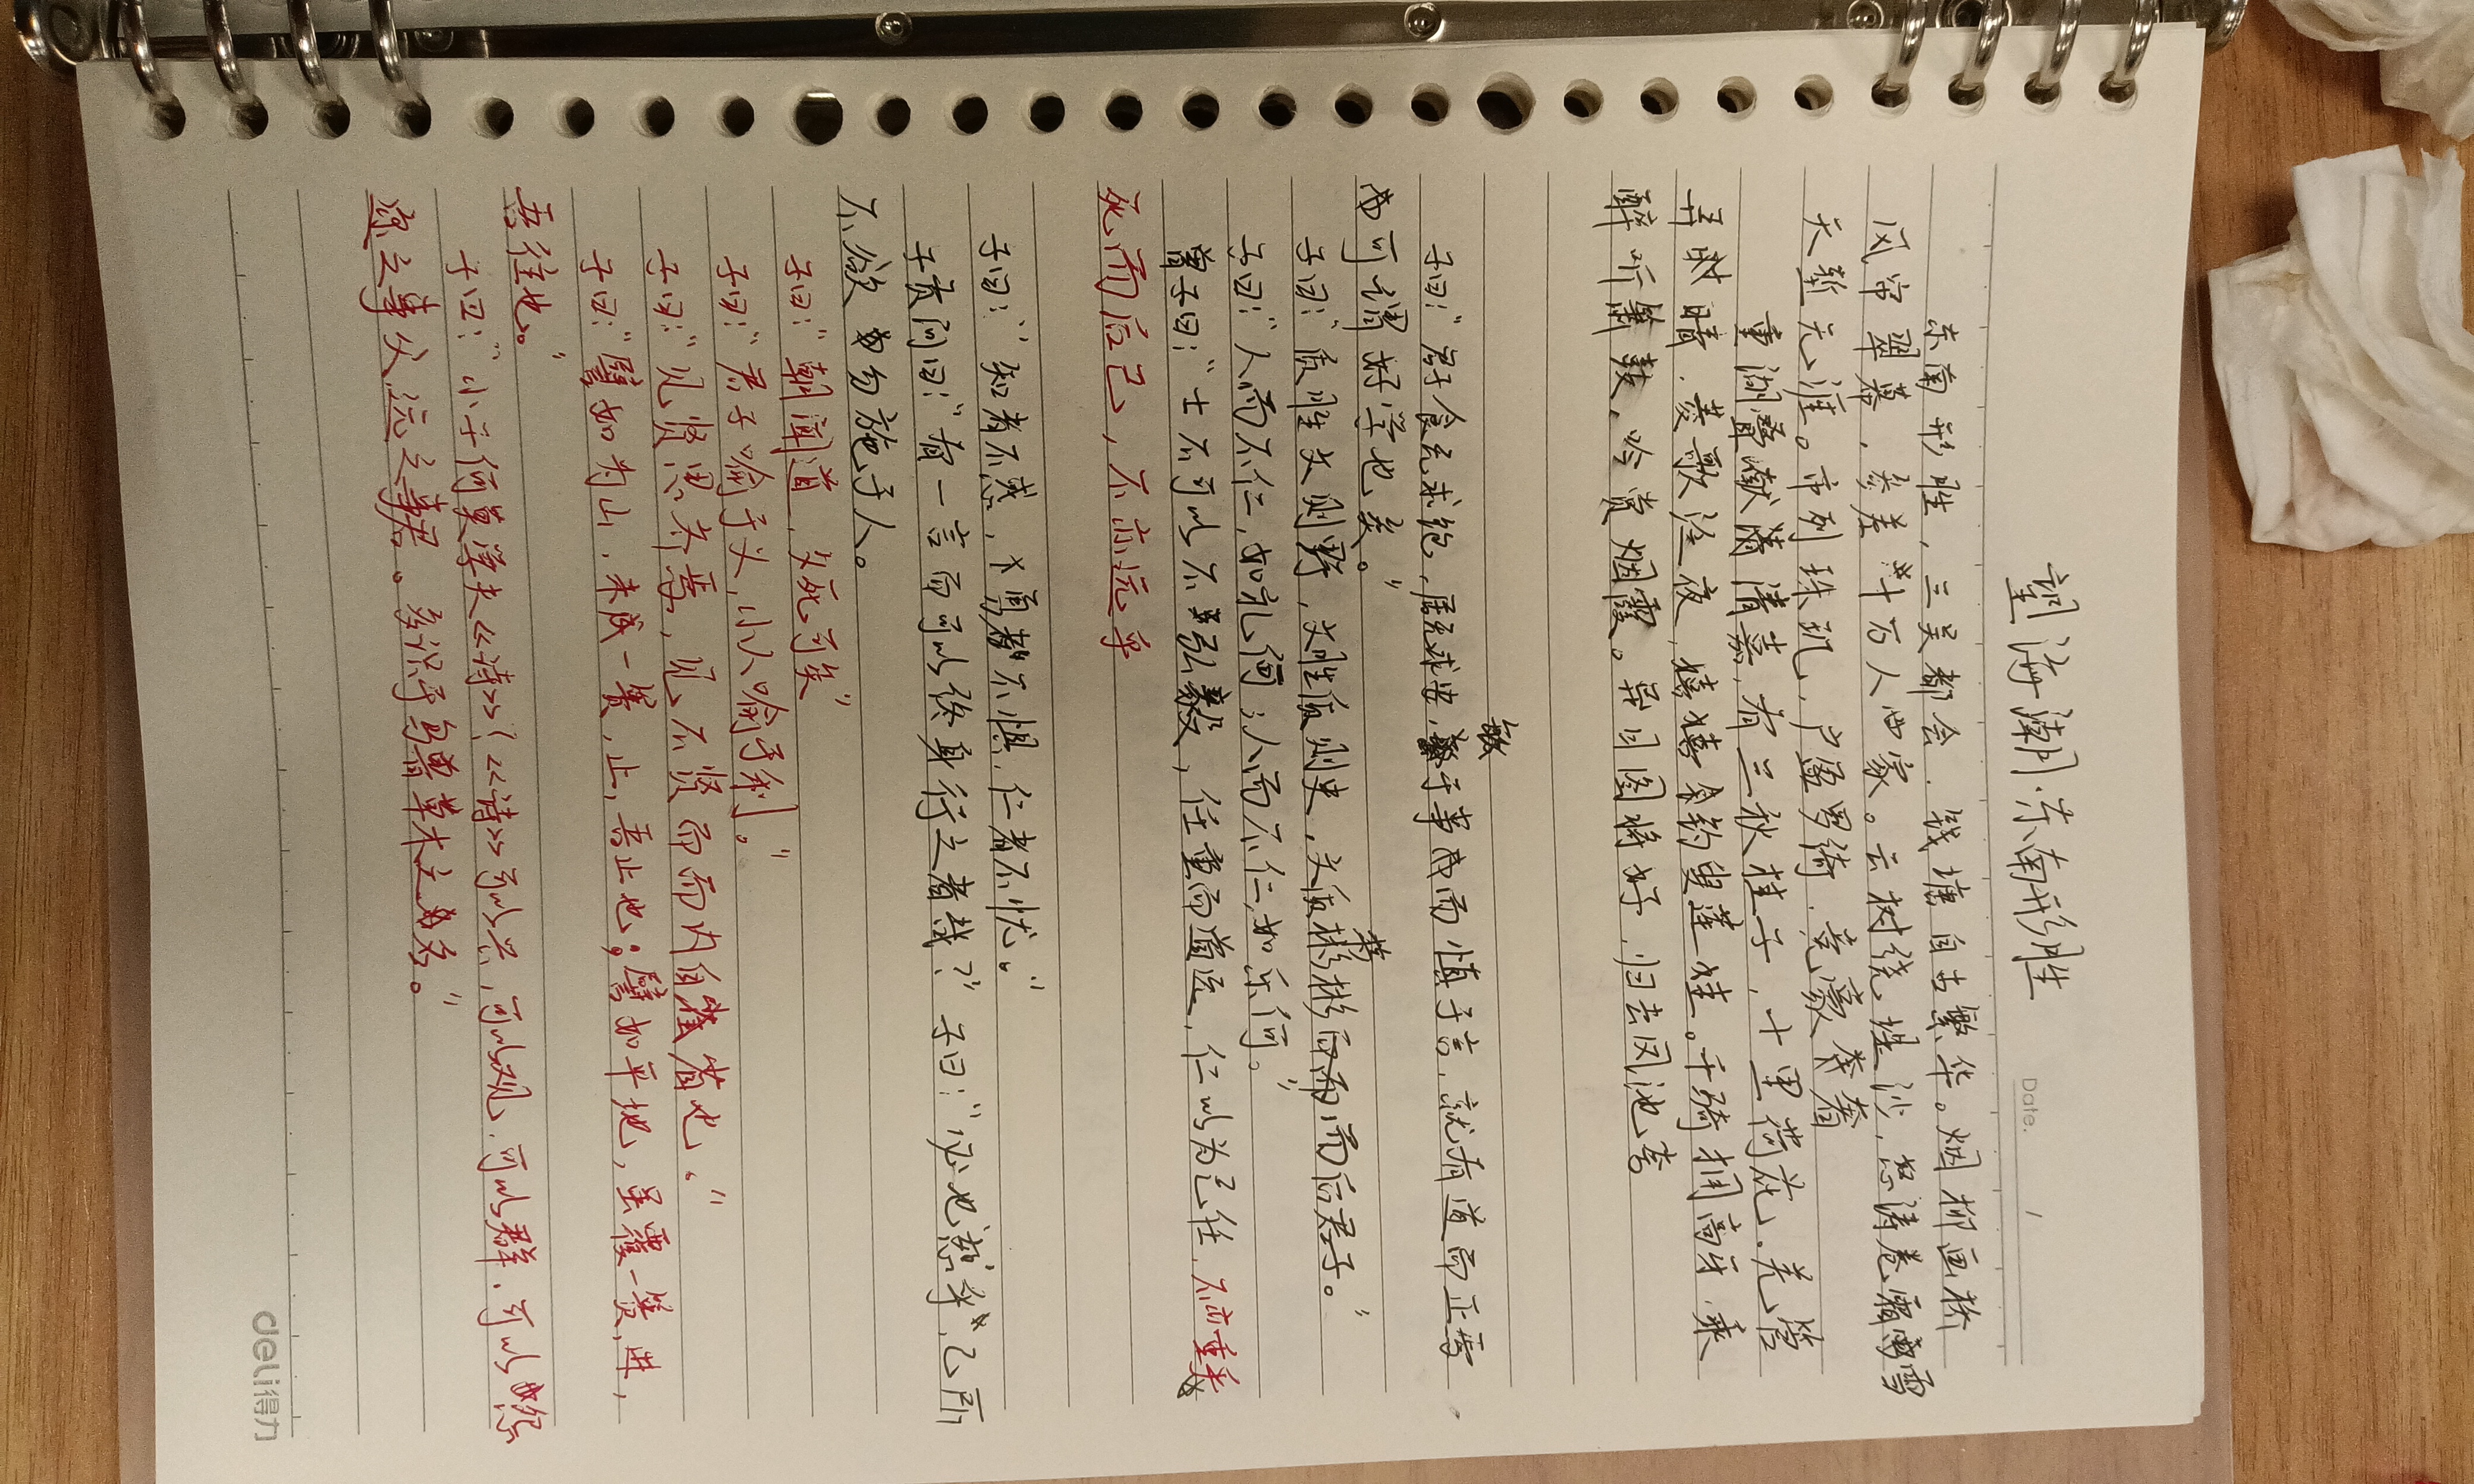 望海潮·东南形胜
Date. /
东南形胜，三吴都会，钱塘自古繁华。烟柳画桥
风帘翠幕，参差十万人家。云树绕堤沙，怒涛卷霜雪
天堑无涯。市列珠玑，户盈罗绮，竞豪奢
重湖叠巘清嘉，有三秋桂子，十里荷花。羌管
弄晴，菱歌泛夜，嬉嬉钓叟莲娃。千骑拥高牙，乘
醉听箫鼓，吟赏烟霞。异日图将好，归去凤池夸
敏
子曰：“君子食无求饱，居无求安，于事而慎于言，就有道而正焉
可谓好学也矣。”
子曰：“质胜文则野，文胜质则史，文质彬彬而后君子。”
子曰：“人而不仁，如礼何；人而不仁，如乐何。”
曾子曰：“士不可以不弘毅，任重而道远，仁以为己任，不亦重
死而后已，不亦远乎
子曰：“知者不惑，勇者不惧，仁者不忧。”
子贡问曰：“有一言而可以终身行之者哉？”子曰：“必也恕乎，己所
不欲勿施于人。
子曰：“朝闻道，夕死可矣”
子曰：“君子喻于义，小人喻于利。”
子曰：“见贤思齐焉，见不贤而而内自省也。”
子曰：“譬如为山，未成一篑，止，吾止也；譬如平地，虽覆一篑，进，
吾往也。”
子曰：“小子何莫学夫《诗》？《诗》可以兴，可以观，可以群，可以怨
迩之事父，远之事君。多识乎鸟兽草木之名。”
deli得力